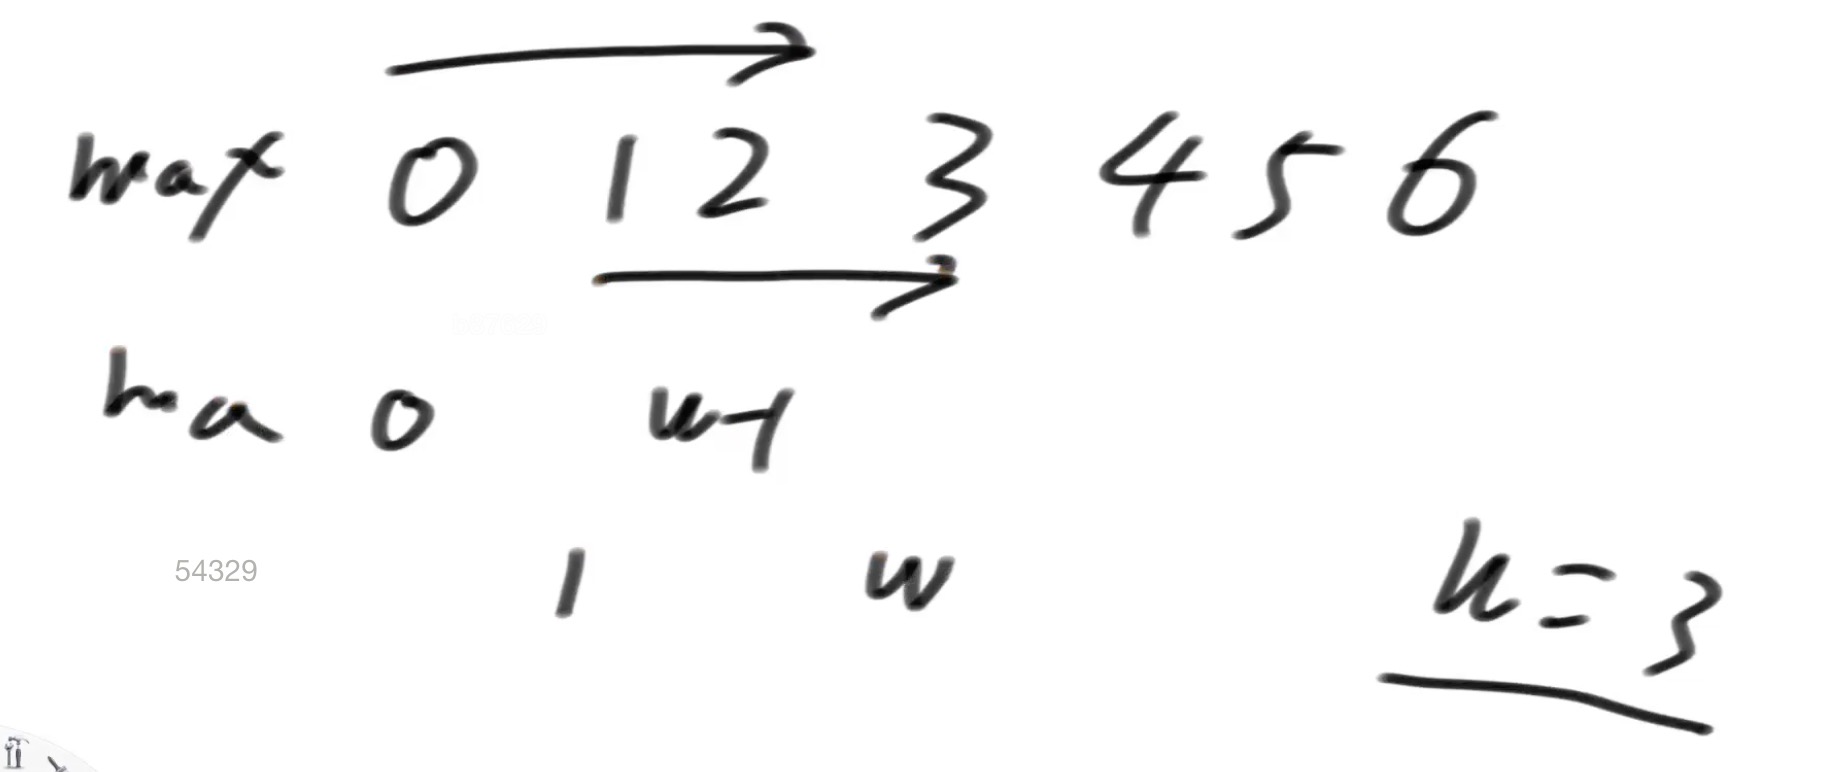 max 0 1 2 3 4 5 6
ma 0 w-1
54329 1 w
k=3